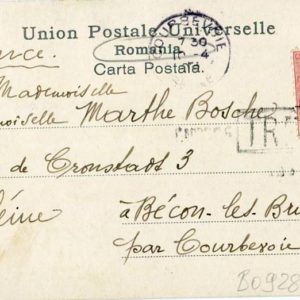 Union Postale Universelle
Romania
Carta Postala.
COURBEVOIE
7 30
-4
Mademoiselle
Marthe Bosche
de Cronstadt 3
à Bécon-les-Bru
par Courbevoie
B0928